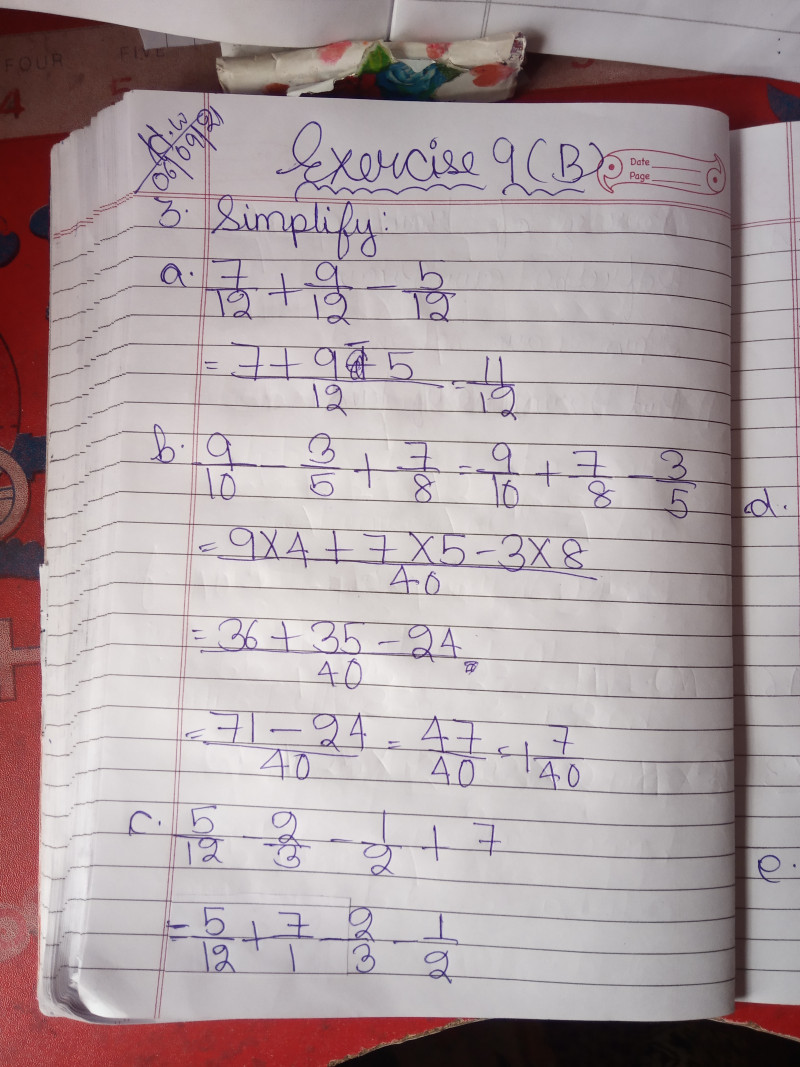 FOUR FIVE
4 5
H.W
06/09/21
Exercise 9(B)
Date
Page
3. Simplify:
a. 7/12 + 9/12 - 5/12
= 7+9-5/12 = 11/12
b. 9/10 - 3/5 + 7/8 = 9/10 + 7/8 - 3/5
= 9×4 + 7×5 - 3×8/40
= 36 + 35 - 24/40
= 71 - 24/40 = 47/40 = 1 7/40
c. 5/12 - 2/3 - 1/2 + 7
= 5/12 + 7/1 - 2/3 - 1/2
d.
e.